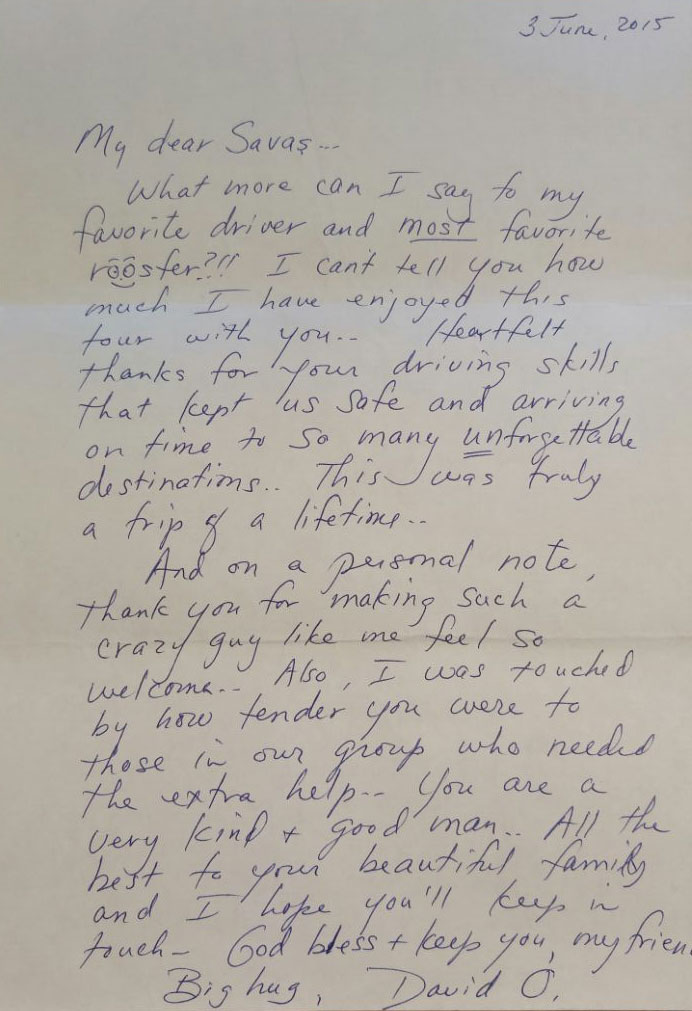 3 June, 2015
My dear Savaş...
What more can I say to my
favorite driver and most favorite
rooster?!! I can't tell you how
much I have enjoyed this
tour with you.. Heartfelt
thanks for your driving skills
that kept us safe and arriving
on time to so many unforgettable
destinations.. This was truly
a trip of a lifetime..
And on a personal note,
thank you for making such a
crazy guy like me feel so
welcome.. Also, I was touched
by how tender you were to
those in our group who needed
the extra help.. You are a
very kind + good man.. All the
best to your beautiful family
and I hope you'll keep in
touch— God bless + keep you, my frien
Big hug, David O.